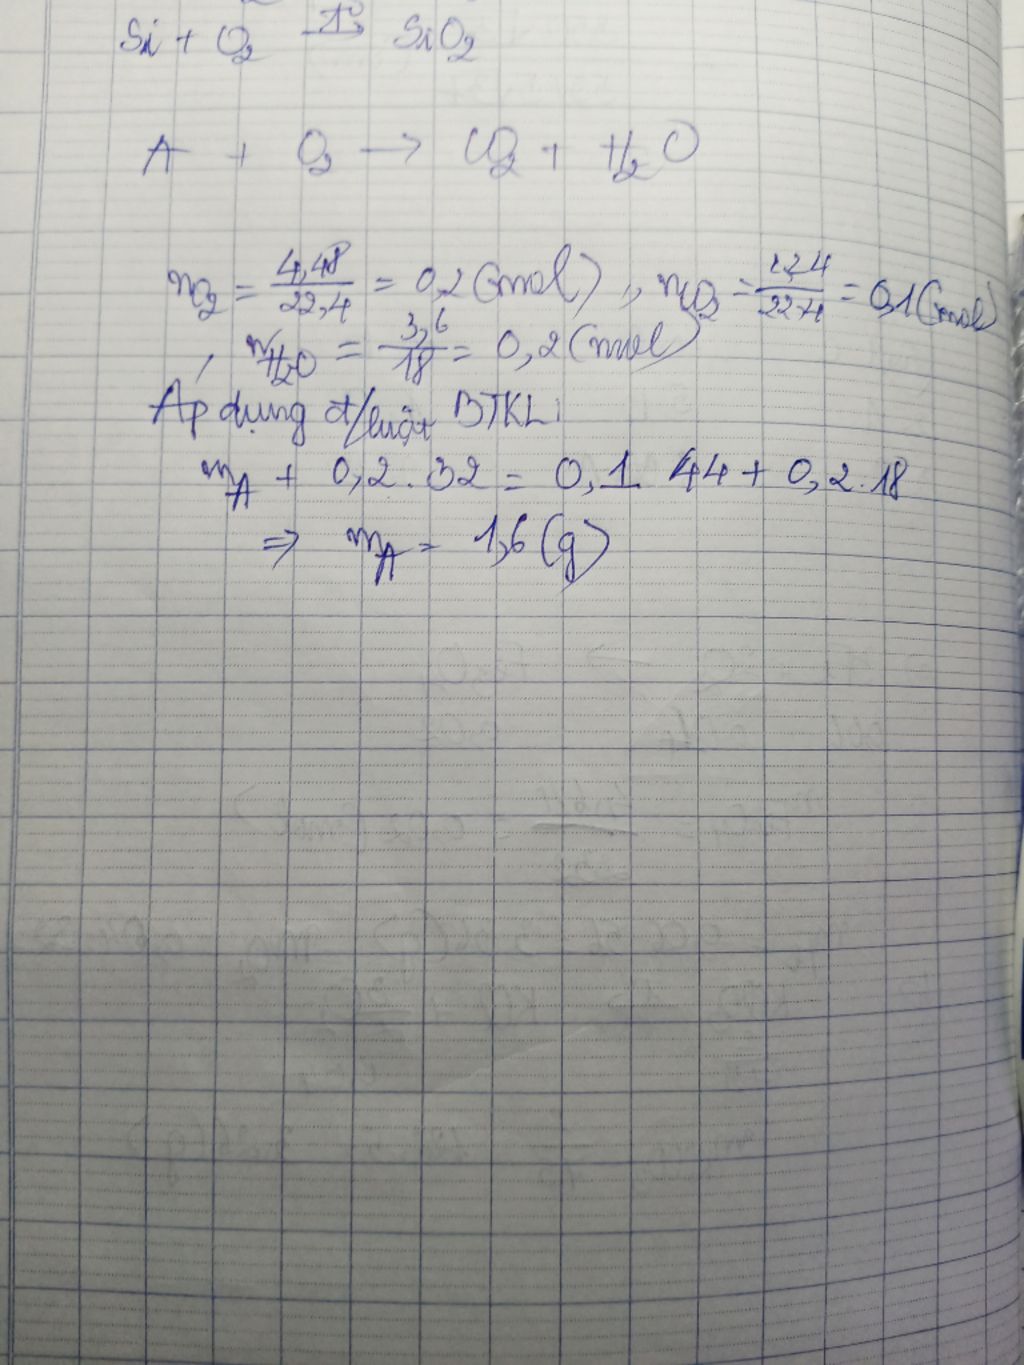 Si + O2 t°→ SiO2
A + O2 → CO2 + H2O
nO2 = 4,48/22,4 = 0,2 (mol), nCO2 = 2,24/22,4 = 0,1 (mol)
, nH2O = 3,6/18 = 0,2 (mol)
Áp dụng đ/luật BTKL:
mA + 0,2 . 32 = 0,1 . 44 + 0,2 . 18
⇒ mA = 1,6 (g)